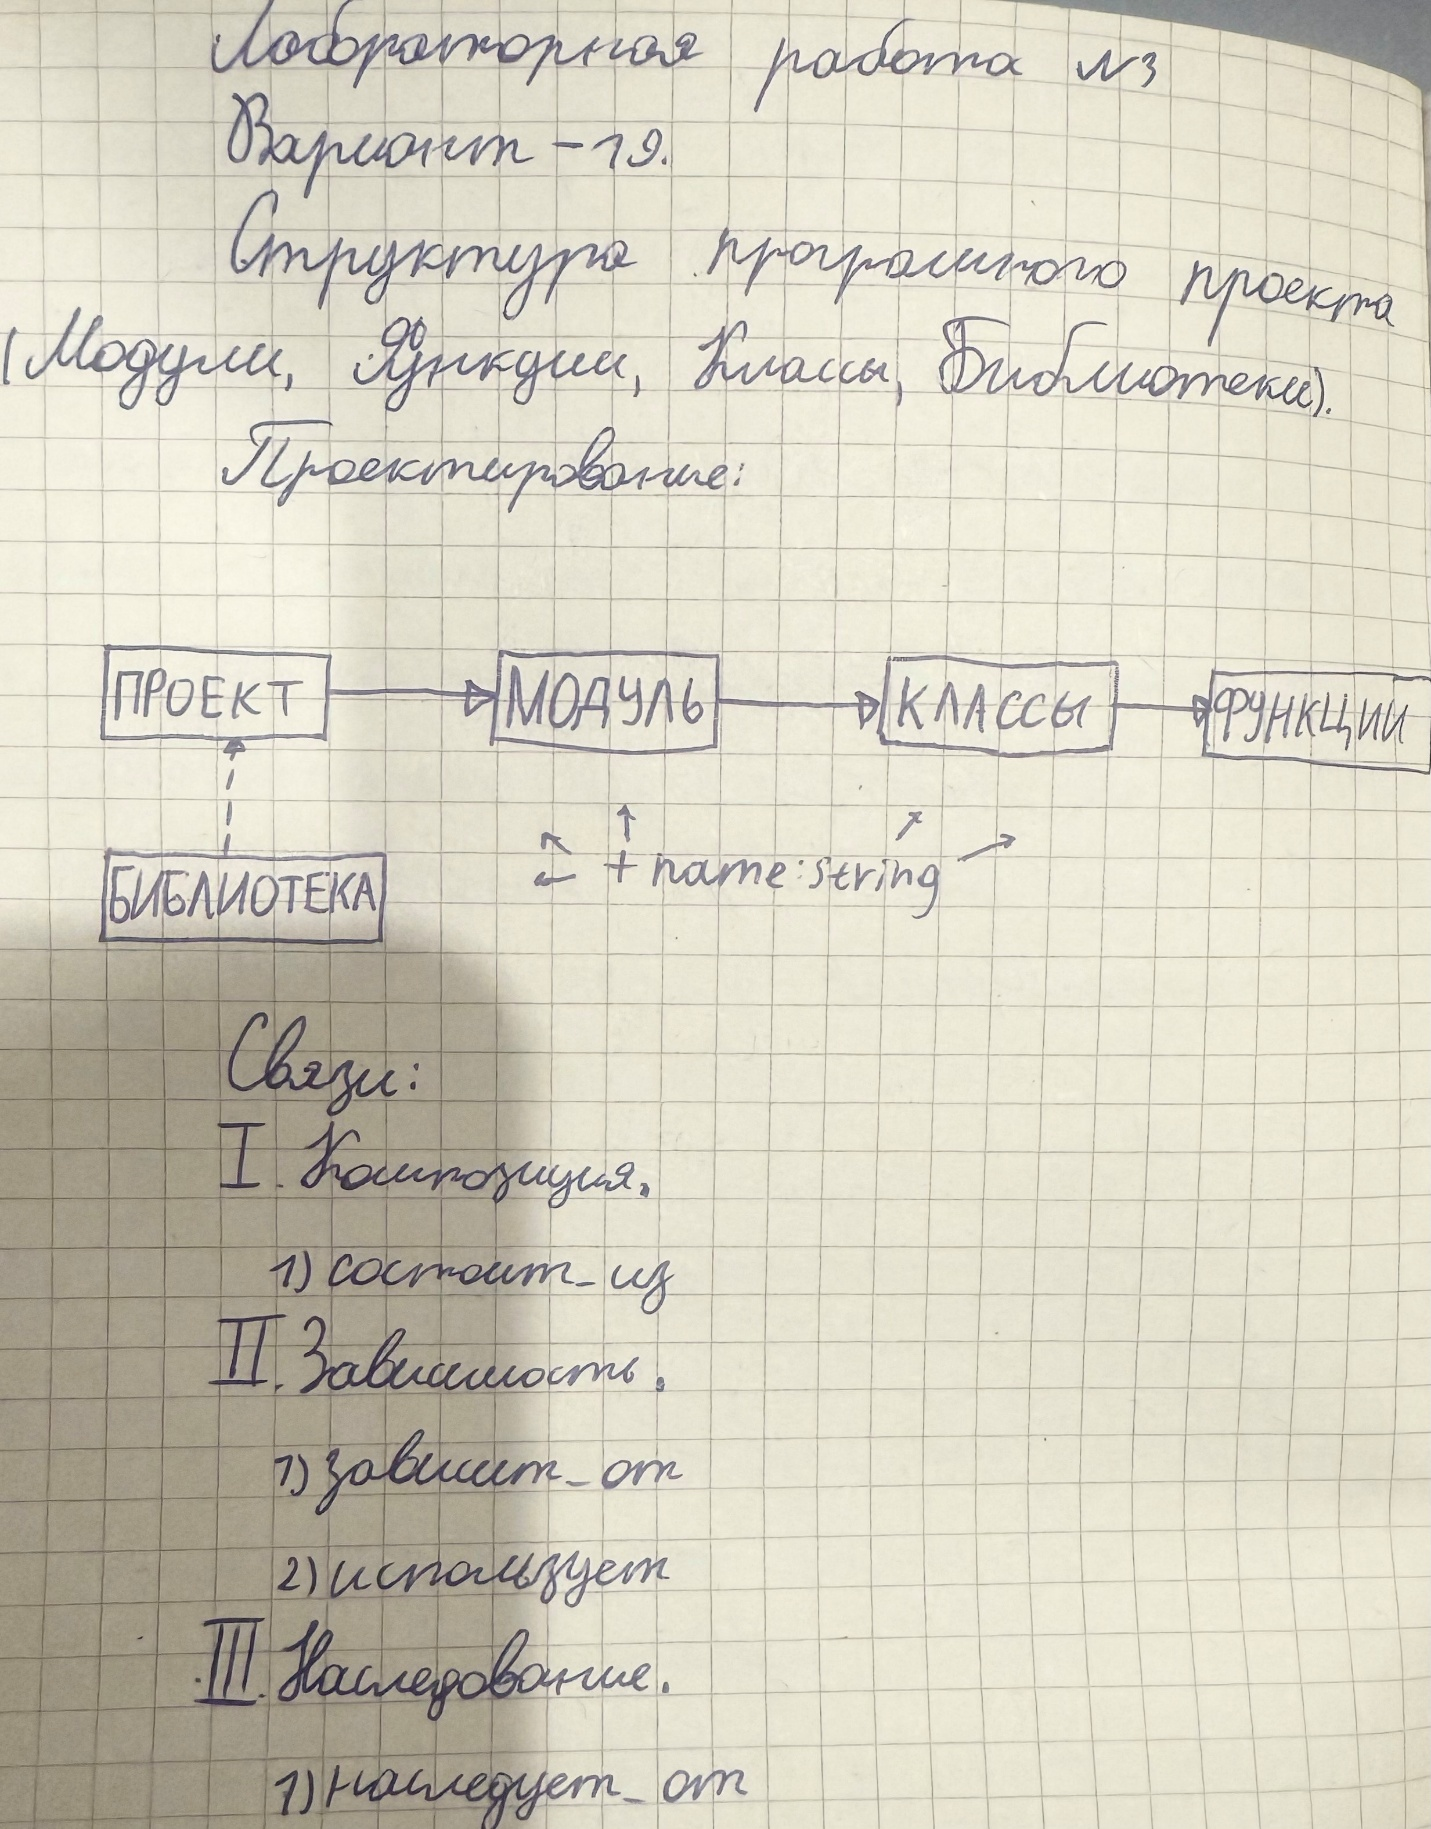 Лабораторная работа №3
Вариант - 19.
Структура програмного проекта
(Модули, Функции, Классы, Библиотеки).
Проектирование:
ПРОЕКТ МОДУЛЬ КЛАССЫ ФУНКЦИИ
БИБЛИОТЕКА + name:string
Связи:
I. Композиция.
1) состоит_из
II. Зависимость.
1) зависит_от
2) использует
III. Наследование.
1) наследует_от